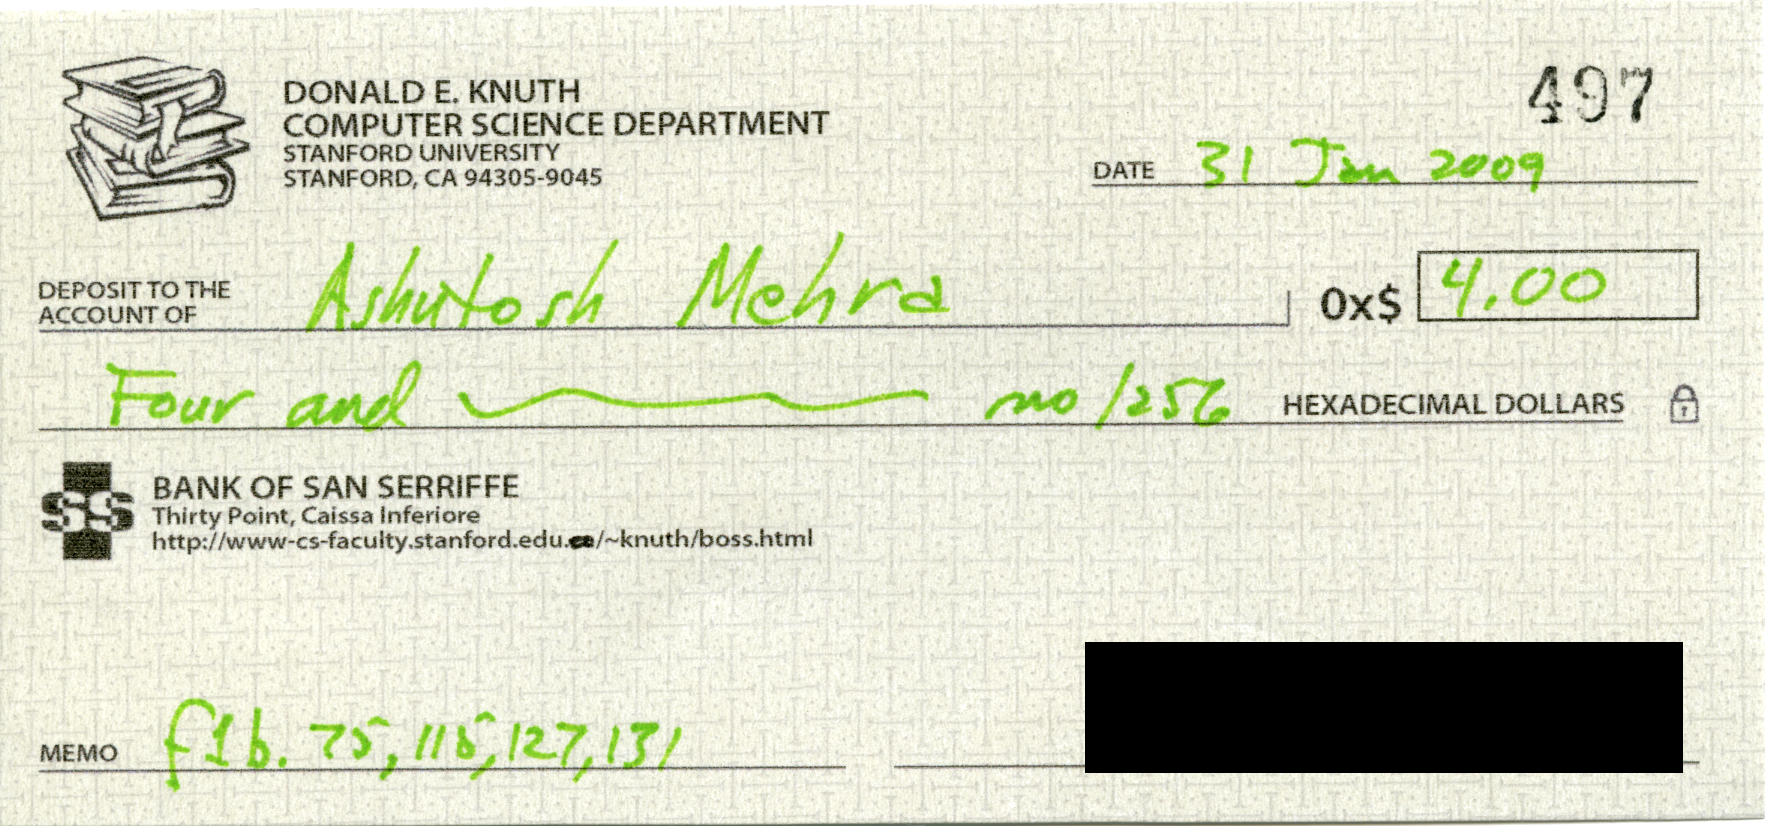 DONALD E. KNUTH
COMPUTER SCIENCE DEPARTMENT
STANFORD UNIVERSITY
STANFORD, CA 94305-9045
497
DATE 31 Jan 2009
DEPOSIT TO THE
ACCOUNT OF Ashutosh Mehra 0x$ 4.00
Four and no/256 HEXADECIMAL DOLLARS
SS
BANK OF SAN SERRIFFE
Thirty Point, Caissa Inferiore
http://www-cs-faculty.stanford.edu/~knuth/boss.html
MEMO f1b. 75, 115, 127, 131